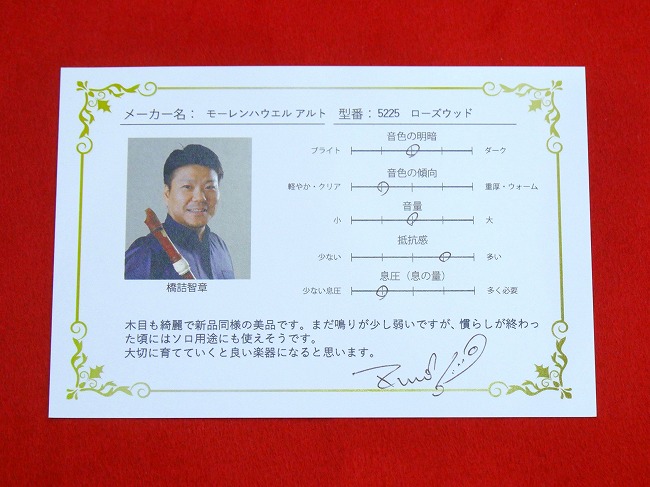 メーカー名： モーレンハウエル アルト 型番： 5225 ローズウッド
音色の明暗
ブライト ダーク
音色の傾向
軽やか・クリア 重厚・ウォーム
音量
小 大
抵抗感
少ない 多い
息圧（息の量）
少ない息圧 多く必要
橋詰智章
木目も綺麗で新品同様の美品です。まだ鳴りが少し弱いですが、慣らしが終わっ
た頃にはソロ用途にも使えそうです。
大切に育てていくと良い楽器になると思います。